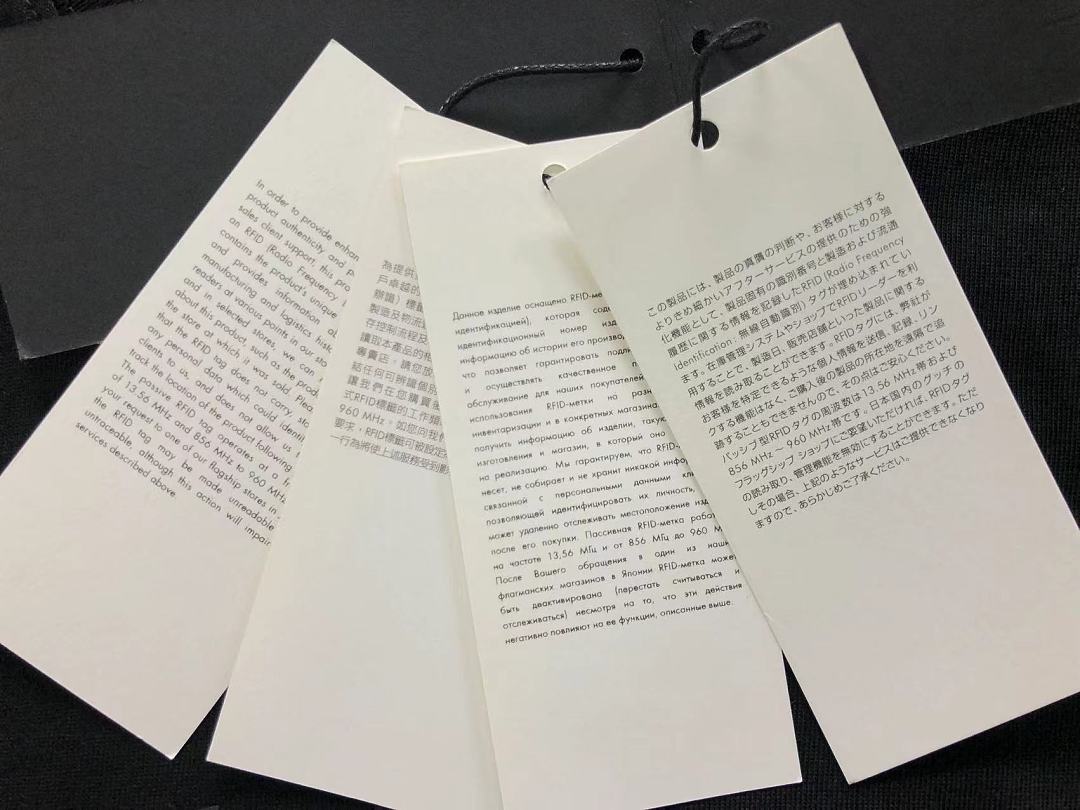 In order to provide enhan
product authenticity and p
sales client support, this pro
an RFID (Radio Frequency I
contains the product's unique
and provides information ab
manufacturing and logistics his
readers at various points in our sto
and in selected stores, we can
about this product, such as the prod
the store at which it was sold. Plea
that the RFID tag does not carry, st
any personal data which could identi
clients to us, and does not allow us
track the location of the product following
The passive RFID tag operates at a fr
of 13.56 MHz and 856 MHz to 960 MHz
your request to one of our flagship stores in
the RFID tag may be made unreadable
untraceable, although this action will impair
services described above.
為提供
戶卓越的
辦識）標籤
製造及物流
存控制流程及
讀取本產品的相
專賣店。請您放
結任何可辨識個別
讓我們在您購買後
式RFID標籤的工作頻
960 MHz。如您向我們
要求，RFID標籤可被設定
一行為將使上述服務受到影
Данное изделие оснащено RFID-ме
идентификацией), которая соде
идентификационный номер изд
информацию об истории его произво
что позволяет гарантировать подли
и осуществлять качественное п
обслуживание для наших покупателей
использования RFID-метки на разн
инвентаризации и в конкретных магазина
получить информацию об изделии, такую
изготовления и магазин, в который оно
на реализацию. Мы гарантируем, что RFID-
несет, не собирает и не хранит никакой инфор
связанной с персональными данными кли
позволяющей идентифицировать их личность,
может удаленно отслеживать местоположение изд
после его покупки. Пассивная RFID-метка работ
на частоте 13,56 МГц и от 856 МГц до 960 М
После Вашего обращения в один из наши
флагманских магазинов в Японии RFID-метка може
быть деактивирована (перестать считываться и
отслеживаться) несмотря на то, что эти действия
негативно повлияют на ее функции, описанные выше.
この製品には、製品の真贋の判断や、お客様に対する
よりきめ細かいアフターサービスの提供のための強
化機能として、製品固有の識別番号と製造および流通
履歴に関する情報を記録したRFID (Radio Frequency
Identification : 無線自動識別) タグが埋め込まれてい
ます。在庫管理システムやショップでRFIDリーダーを利
用することで、製造日、販売店舗といった製品に関する
情報を読み取ることができます。RFIDタグには、弊社が
お客様を特定できるような個人情報を送信、記録、リン
クする機能はなく、ご購入後の製品の所在地を遠隔で追
跡することもできませんので、その点はご安心ください。
パッシブ型RFIDタグの周波数は13.56 MHz帯および
856 MHz ～ 960 MHz帯です。日本国内のグッチの
フラッグシップ ショップにご要望いただければ、RFIDタグ
の読み取り、管理機能を無効にすることができます。ただ
しその場合、上記のようなサービスはご提供できなくなり
ますので、あらかじめご了承ください。